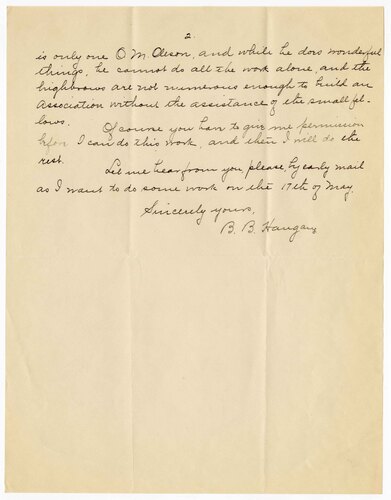 2.
is only one O. M. Oleson, and while he does wonderful
things, he cannot do all the work alone, and the
highbrows are not numerous enough to build an
Association without the assistance of the small fel-
lows.
Of course you have to give me permission
before I can do this work, and then I will do the
rest.
Let me hear from you, please, by early mail
as I want to do some work on the 17th of May.
Sincerely yours,
B. B. Haugan